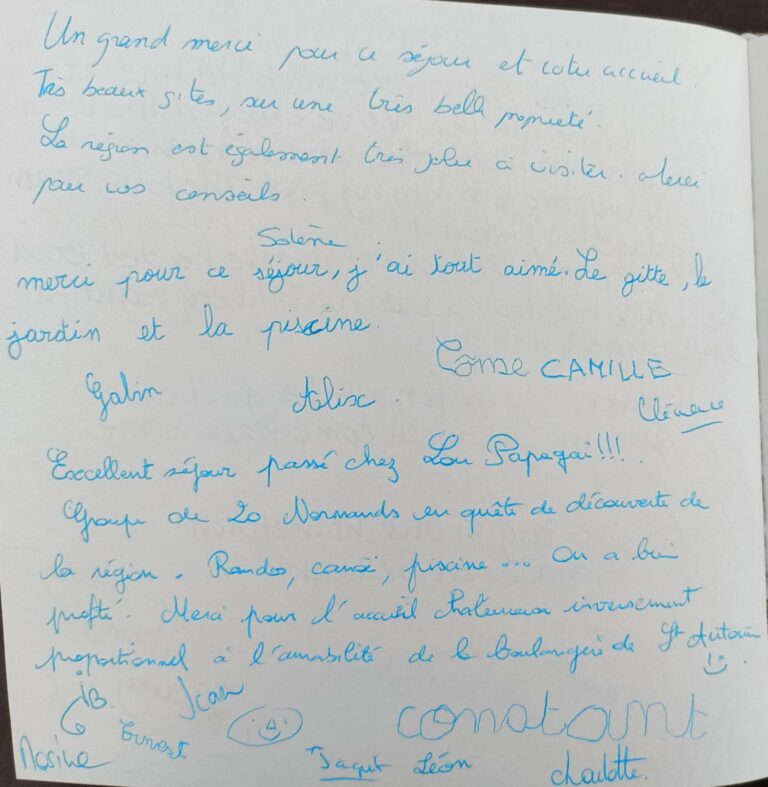 Un grand merci pour ce séjour et votre accueil.
Très beaux gites, sur une très belle propriété.
La région est également très jolie à visiter. Merci
pour vos conseils.
Solène
merci pour ce séjour, j'ai tout aimé. Le gitte, le
jardin et la piscine.
Come CAMILLE
Gabin Alix. Clémence
Excellent séjour passé chez Lou Papagai!!!
Groupe de 20 Normands en quête de découverte de
la région. Randos, canoë, piscine... On a bien
profité. Merci pour l'accueil chaleureux inversement
proportionnel à l'amabilité de la boulangerie de St Antonin
JB Jean constant
Marine Ernest Jaquet Léon charlotte.